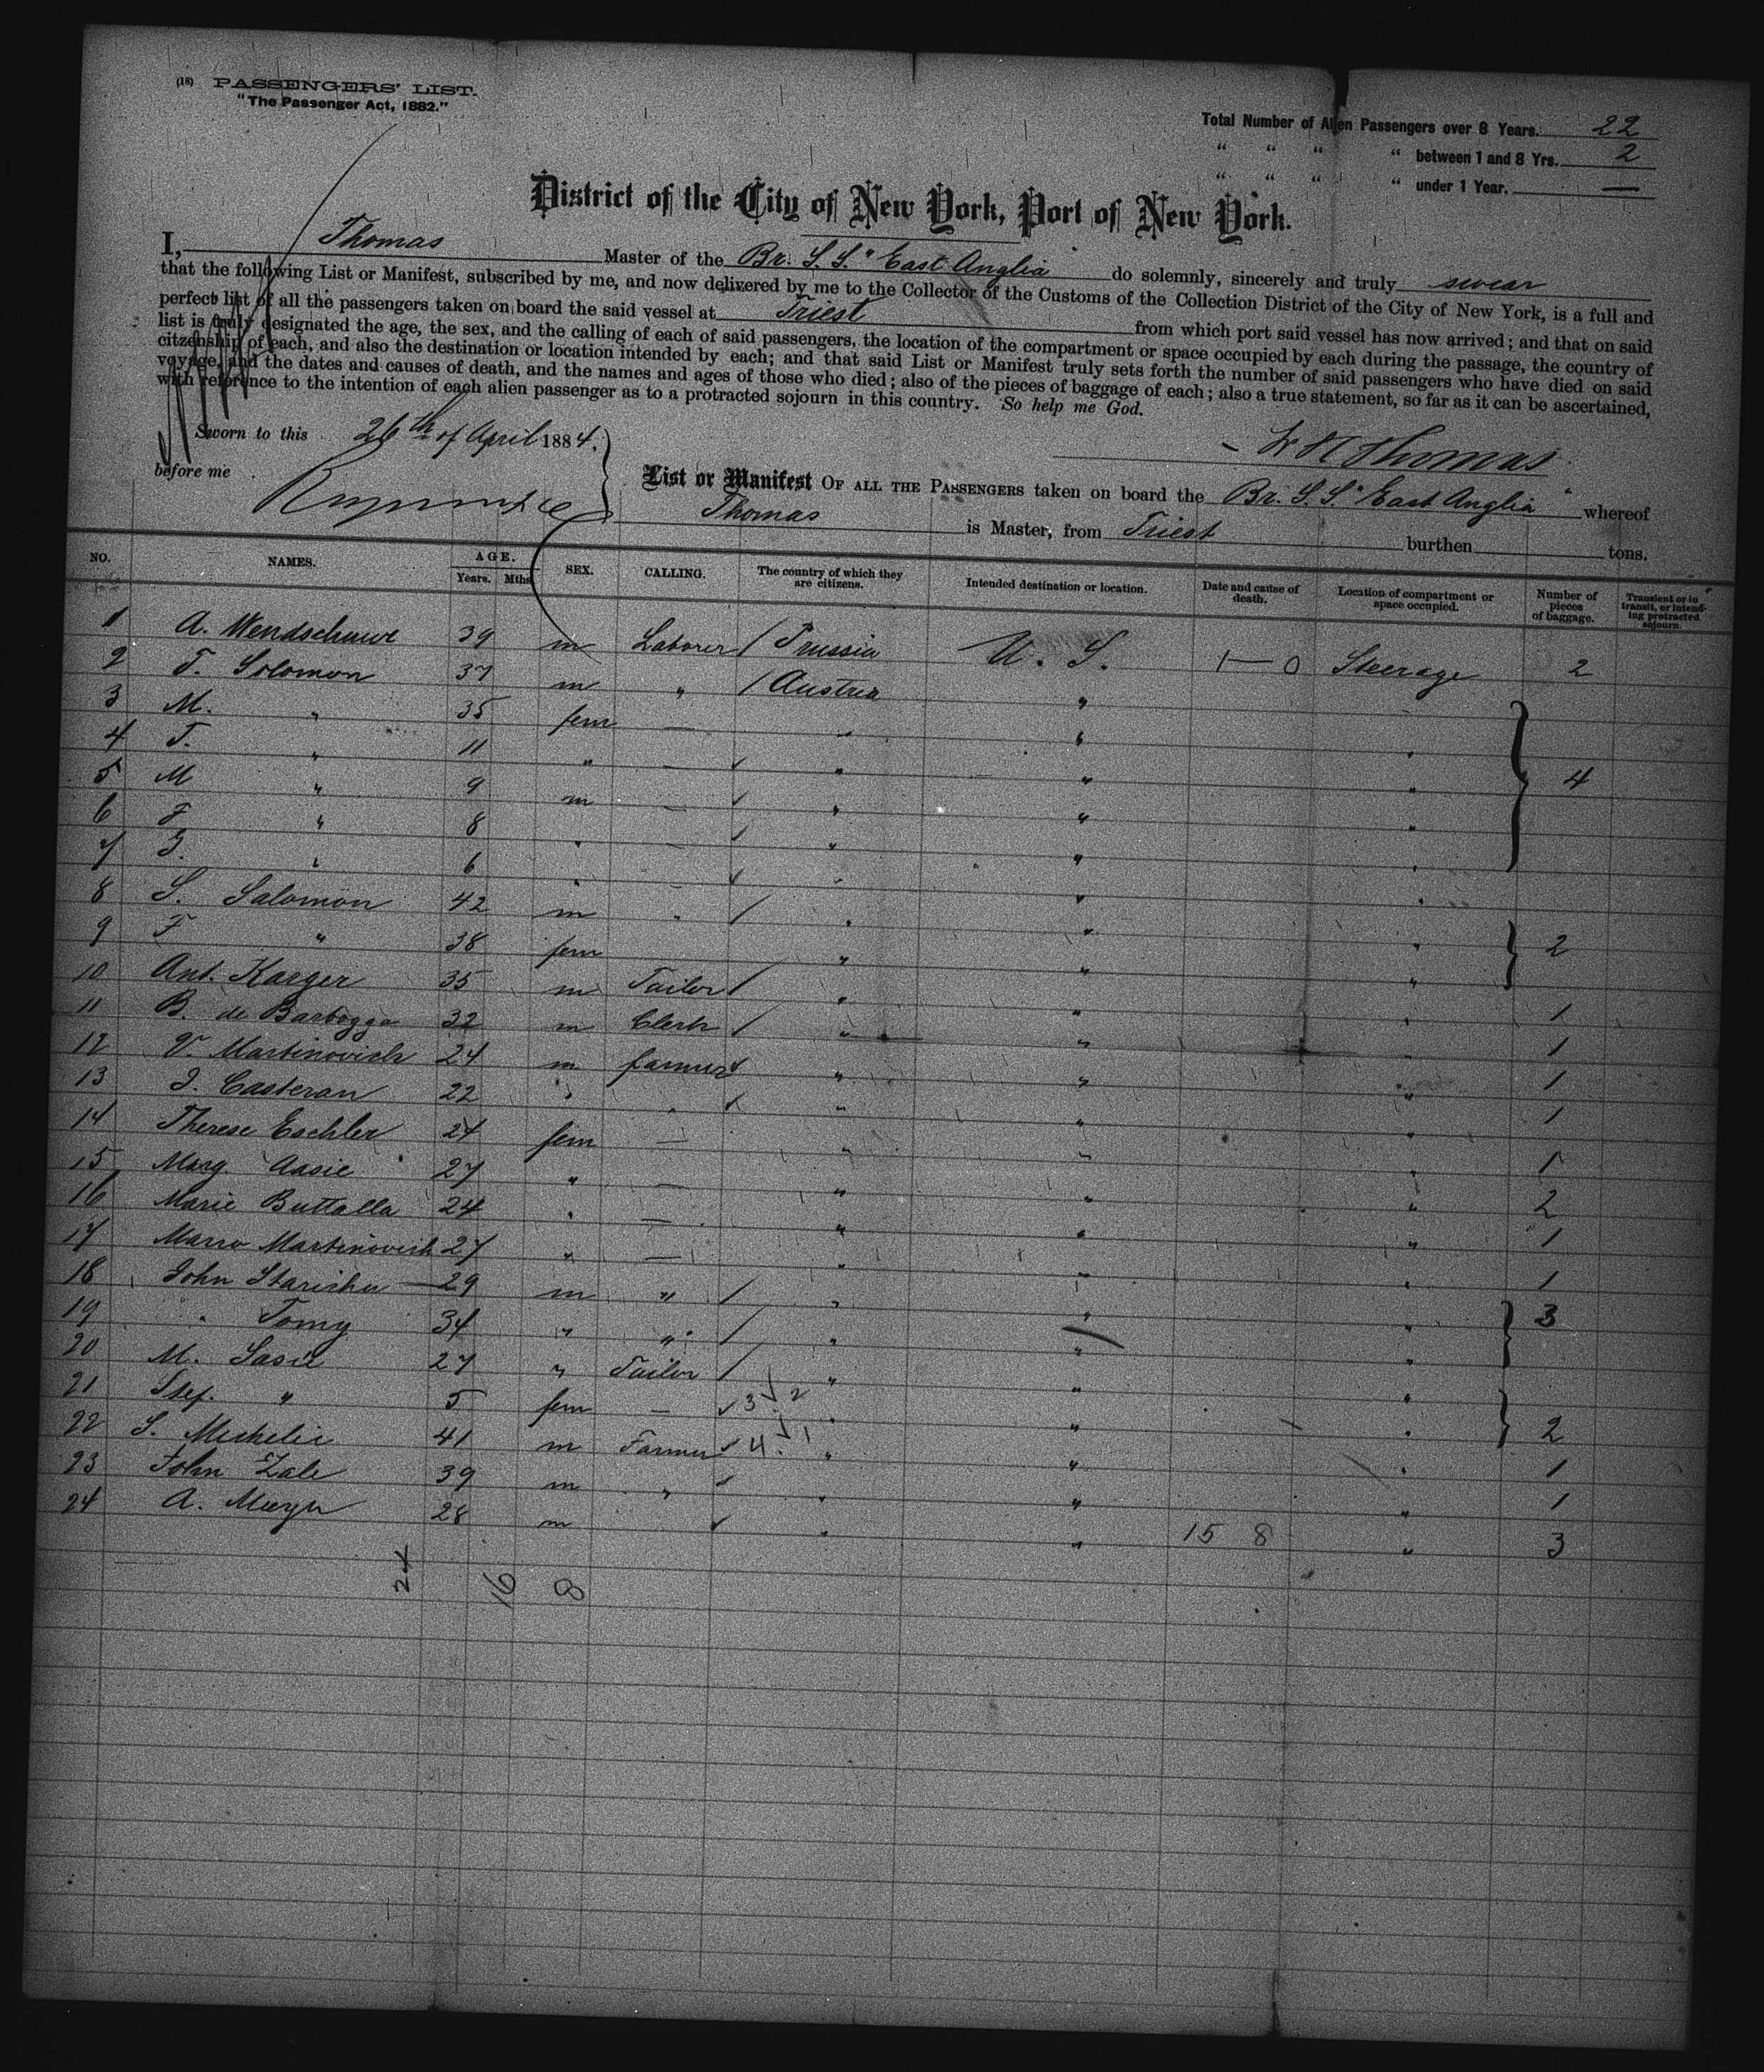 (18) PASSENGERS' LIST.
"The Passenger Act, 1882."
Total Number of Alien Passengers over 8 Years. 22
" " " " between 1 and 8 Yrs. 2
" " " " under 1 Year. —
District of the City of New York, Port of New York.
I, Thomas Master of the Br. S. S. "East Anglia do solemnly, sincerely and truly swear
that the following List or Manifest, subscribed by me, and now delivered by me to the Collector of the Customs of the Collection District of the City of New York, is a full and
perfect list of all the passengers taken on board the said vessel at Triest from which port said vessel has now arrived; and that on said
list is truly designated the age, the sex, and the calling of each of said passengers, the location of the compartment or space occupied by each during the passage, the country of
citzenship of each, and also the destination or location intended by each; and that said List or Manifest truly sets forth the number of said passengers who have died on said
voyage, and the dates and causes of death, and the names and ages of those who died; also of the pieces of baggage of each; also a true statement, so far as it can be ascertained,
with reference to the intention of each alien passenger as to a protracted sojourn in this country. So help me God.
Sworn to this 26th of April 1884.
W H Thomas
before me
List or Manifest OF ALL THE PASSENGERS taken on board the Br. S. S. "East Anglia" whereof
Thomas is Master, from Triest burthen tons.
NO. NAMES. AGE. Years. Mths SEX. CALLING. The country of which they are citizens. Intended destination or location. Date and cause of death. Location of compartment or space occupied. Number of pieces of baggage. Transient or in transit, or intending protracted sojourn.
1 A. Wendschuwe 39 m Laborer / Prussia U. S. 1—0 Steerage 2
2 T. Solomon 37 m " / Austria " "
3 M. " 35 fem — " " "
4 T. " 11 " — ✓ " " " 4
5 M " 9 m — ✓ " " "
6 F " 8 " — ✓ " " "
7 G. " 6 " — ✓ " " "
8 S. Salomon 42 m " / " " " 2
9 F " 38 fem " " "
10 Ant. Karger 35 m Tailor / " " " 1
11 B. de Barbogga 32 m Clerk / " " " 1
12 V. Martinovich 24 m farmer ✓ " " " 1
13 J. Casteran 22 " " ✓ " " " 1
14 Therese Eschler 24 fem — " " " 1
15 Marg. Aasie 27 " — " " " 2
16 Marie Buttalla 24 " — " " " 1
17 Marro Martinovich 27 " — " " " 1
18 John Starichu 29 m " / " " " 3
19 " Tomy 34 " " / " " "
20 M. Sasie 27 " Tailor / " " " 2
21 Stef. " 5 fem — ✓ 3 ✓ 2 " " "
22 S. Michelic 41 m Farmer ✓ 4 ✓ 1 " " " 1
23 John Zale 39 m " ✓ " " " 1
24 A. Mayer 28 m ✓ " " 15 8 " 3
24 16 8